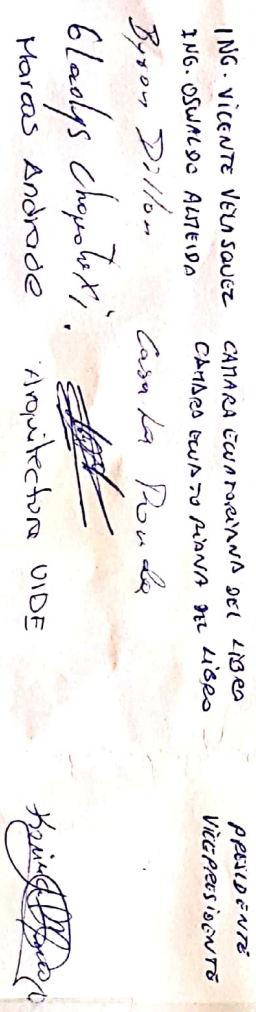 ING. VICENTE VELASQUEZ CAMARA ECUATORIANA DEL LIBRO PRESIDENTE
ING. OSWALDO ALMEIDA CAMARA ECUATORIANA DEL LIBRO VICEPRESIDENTE
Byron Dillon Casa La Ronda
Gladys
Marcos Andrade Arquitectura UIDE